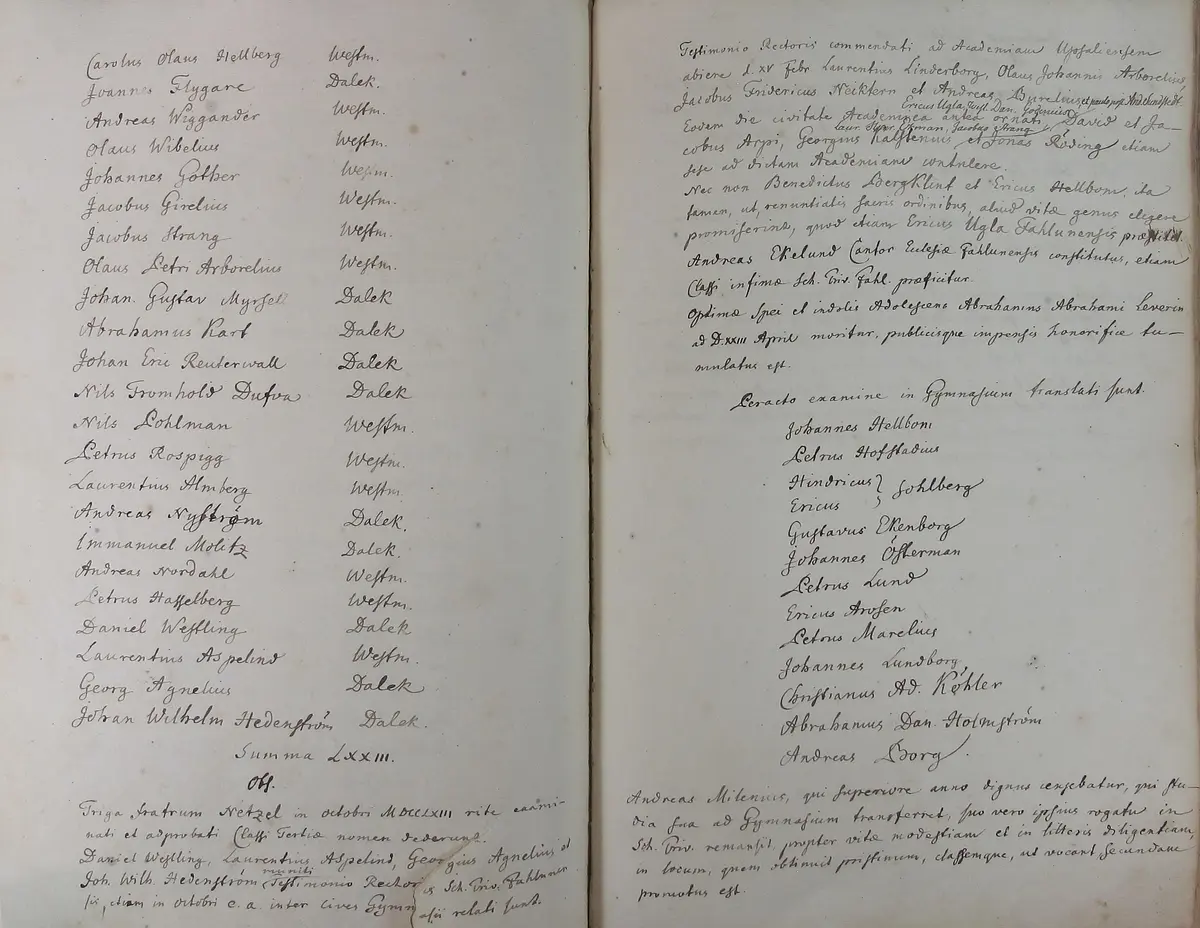 Carolus Olaus Hellberg Westm.
Joannes Flygare Dalek.
Andreas Wiggander Westm.
Olaus Wibelius Westm.
Johannes Göther Westm.
Jacobus Girelius Westm.
Jacobus Strang Westm.
Olaus Petri Arborelius Westm.
Johan. Gustav Myrsell Dalek
Abrahamus Kart Dalek
Johan Eric Reuterwall Dalek
Nils Fromhold Dufva Dalek
Nils Pohlman Westm.
Petrus Rospigg Westm.
Laurentius Almberg Westm.
Andreas Nyström Dalek.
Immanuel Molitz Dalek.
Andreas Nordahl Westm.
Petrus Hasselberg Westm.
Daniel Westling Dalek
Laurentius Aspelind Westm.
Georg Agnelius Dalek
Johan Wilhelm Hedenström Dalek.
Summa LXXIII.
Obs.
Triga fratrum Netzel in octobri MDCCLXIII rite exami-
nati et adprobati Classi Tertiæ nomen dederunt.
Daniel Westling, Laurentius Aspelind, Georgius Agnelius et
Joh. Wilh. Hedenström muniti Testimonio Rectoris Sch. Triv. Fahlunen
sis, etiam in octobri e. a. inter cives Gymnasii relati sunt.
Testimonio Rectoris commendati ad Academiam Upsaliensem
abiere d. XV Febr Laurentius Linderborg, Olaus Johannis Arborelius,
Jacobus Fridericus Neiktern et Andreas Burelius, et paulo post
Ericus Ugla, Dan.
Eodem die civitate Academica antea ornati David et Ja-
Jacobus Strang
cobus Arpi, Georgius Kalstenius et Jonas Röding etiam
sese ad dictam Academiam contulere.
Nec non Benedictus Bergklint et Ericus Hellbom, ita
tamen, ut, renuntiatis sacris ordinibus, aliud vitæ genus eligere
promiserint, quod etiam Ericus Ugla Fahlunensis præstitit.
Andreas Ekelund Cantor Ecclesiæ Fahlunensis constitutus, etiam
Classi infimæ Sch. Triv. Fahl. præficitur.
Optimæ spei et indolis Adolescens Abrahamus Abrahami Leverin
ad D. XXIII April moritur, publicisque impensis honorifice tu-
mulatus est.
Peracto examine in Gymnasium translati sunt.
Johannes Hellbom
Petrus Hofstadius
Hindricus }
Ericus } Sohlberg
Gustavus Ekenborg
Johannes Österman
Petrus Lund
Ericus Arosen
Petrus Marelius
Johannes Lundborg
Christianus Ad. Köhler
Abrahamus Dan. Holmström
Andreas Borg.
Andreas Milenius, qui superiore anno dignus censebatur, qui stu-
dia sua ad Gymnasium transferret, suo vero ipsius rogatu in
Sch. Triv. remansit, propter vitæ modestiam et in litteris diligentiam,
in locum, quem obtinuit pristinum, classemque, ut vocant secundam
promotus est.